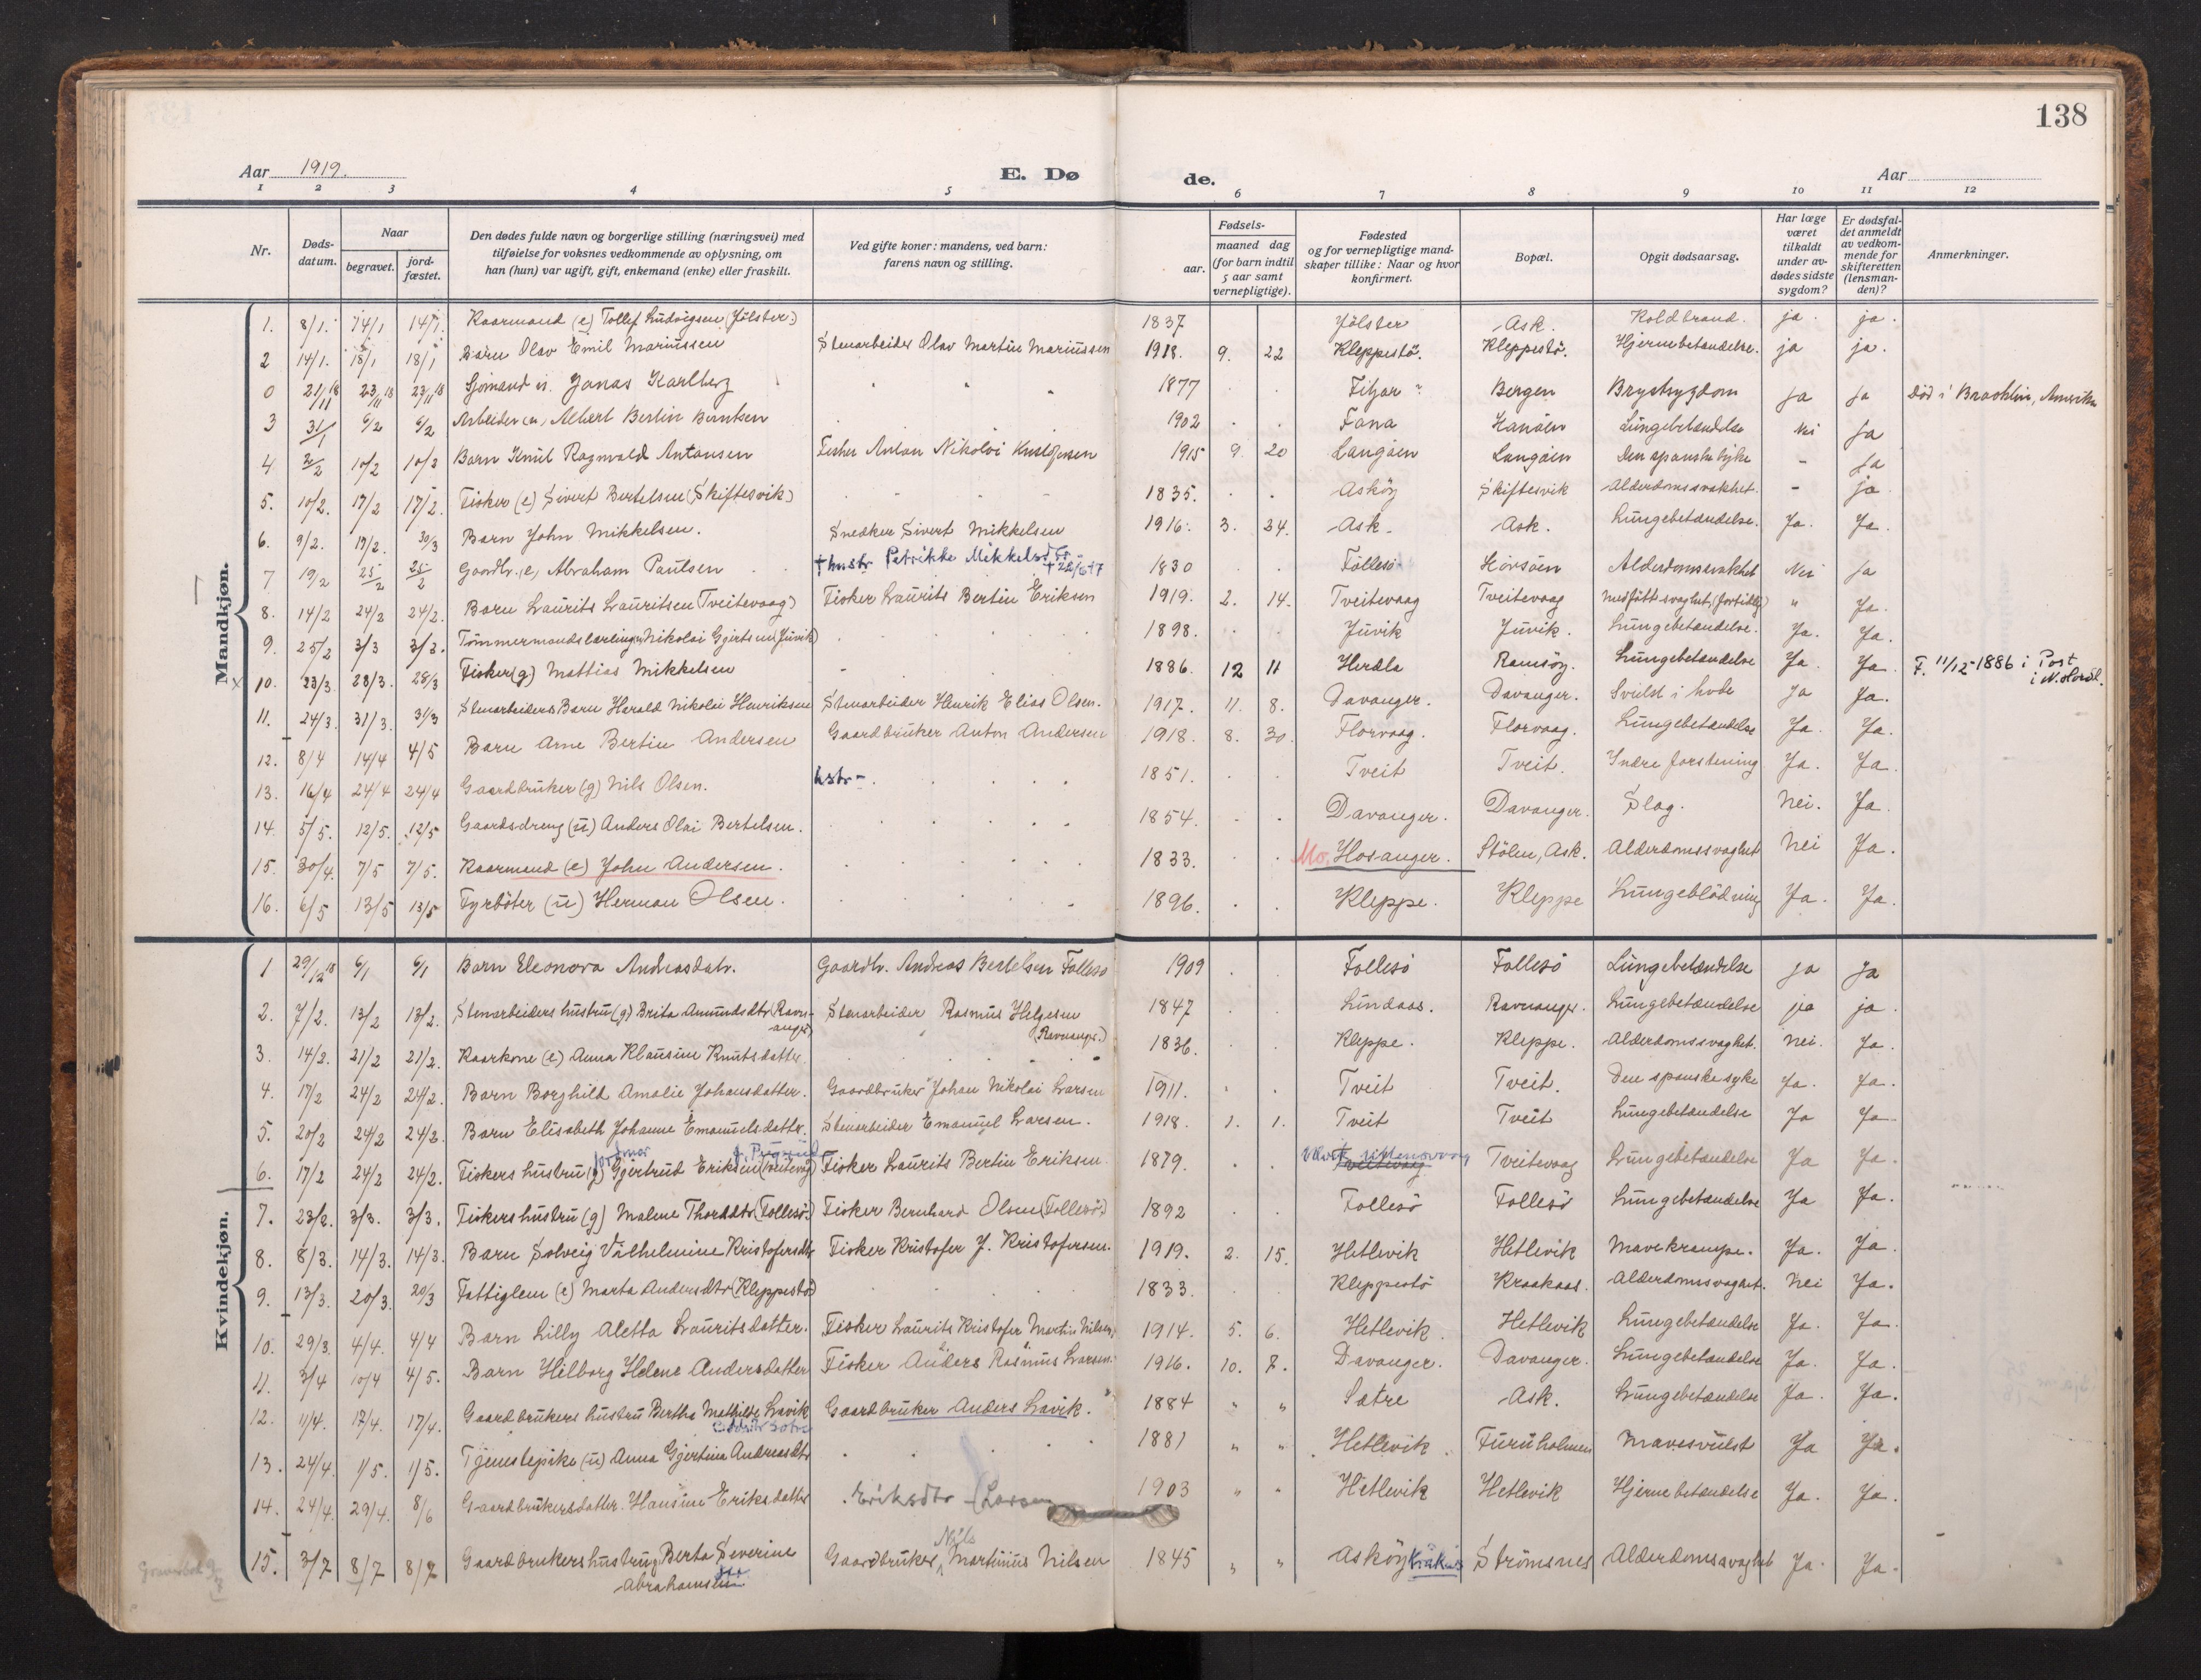 138
Aar 1919.
E. Dø
de.
Aar
1 2 3 4 5 6 7 8 9 10 11 12
Nr.
Døds-
datum.
Naar
begravet.
jord-
fæstet.
Den dødes fulde navn og borgerlige stilling (næringsvei) med
tilføielse for voksnes vedkommende av oplysning, om
han (hun) var ugift, gift, enkemand (enke) eller fraskilt.
Ved gifte koner: mandens, ved barn:
farens navn og stilling.
Fødsels-
aar.
maaned dag
(for barn indtil
5 aar samt
vernepligtige).
Fødested
og for vernepligtige mand-
skaper tillike: Naar og hvor
konfirmert.
Bopæl.
Opgit dødsaarsag.
Har læge
været
tilkaldt
under av-
dødes sidste
sygdom?
Er dødsfal-
det anmeldt
av vedkom-
mende for
skifteretten
(lensman-
den)?
Anmerkninger.
Mandkjøn.
1. 8/1. 14/1 14/1. Kaarmand (e) Tollef Ludvigsen (Jölster) 1837 Jölster Ask. Koldbrand. ja. ja.
2 14/1. 18/1 18/1 Barn Olav Emil Mariussen Stenarbeider Olav Martin Mariussen 1918. 9. 22 Kleppestö. Kleppestö. Hjernebetændelse. ja ja.
0 21/11 18 23/11 18 23/11 18 Sjömand u. Jonas Karlberg 1877 Fitjar Bergen Brystsygdom Ja Ja Död i Brooklin, Amerika
3 31/1 6/2 6/2 Arbeider (u) Albert Bertin Berntsen 1902 Fana Hanöen Lungebetændelse Nei Ja
4 2/2 10/2 10/2 Barn Knut Ragnvald Antonsen Fisker Anton Nikolai 1915 9. 20 Langöen Langöen Den spanske syke - Ja
5. 10/2. 17/2 17/2. Fisker (e) Sivert Bertelsen (Skiftesvik) 1835. Asköy Skiftesvik Alderdomssvakhet. - ja
6. 9/2. 19/2. 30/3 Barn John Mikkelsen. Snedker Sivert Mikkelsen 1916. 3. 24. Ask. Ask. Lungebetændelse. Ja. Ja.
7 19/2 25/2 25/2 Gaardbr. (e) Abraham Paulsen + hustr Petrikke Mikkelsdtr 1830 Follesö Horsöen Alderdomssvakhet Nei Ja
8. 14/2 24/2 24/2. Barn Laurits Lauritsen (Tveitevaag) Fisker Laurits Bertin Eriksen 1919. 2. 14. Tveitevaag Tveitevaag medfödt svaghet, (fortidlig) " Ja.
9. 25/2 3/3 3/3. Tömmermandslærling u Nikolai Gjertsen (Juvik) 1898. Juvik Juvik. Lungebetændelse. Ja. Ja.
x 10. 23/3. 28/3. 28/3 Fisker (g) Mattias Mikkelsen 1886. 12 11 Herdla Ramsöy. Lungebetændelse Ja. Ja. F. 11/12-1886 i Post
i N. Hordl.
11. 24/3. 31/3. 31/3 Stenarbeiders Barn Harald Nikolai Henriksen Stenarbeider Henrik Elias Olsen. 1917. 11. 8. Davanger. Davanger. Svulst i hode Ja Ja.
12. 8/4 14/4 4/5 Barn Arne Bertin Andersen Gaardbruker Anton Andersen 1918. 8. 30. Florvaag. Florvaag. Lungebetændelse Ja. Ja.
13. 16/4 24/4 24/4 Gaardbruker (g) Nils Olsen. hstr - 1851. Tveit Tveit. Indre forstening Ja. Ja.
14. 5/5. 12/5. 12/5 Gaardsdreng (u) Anders Olai Bertelsen. 1854. Davanger. Davanger. Slag. Nei. Ja.
15. 30/4. 7/5 7/5. Kaarmand (e) John Andersen. 1833. Mo. Hosanger. Stölen, Ask. Alderdomssvaghet Nei Ja.
16. 6/5 13/5 13/5 Fyrböter (u) Herman Olsen. 1896. Kleppe. Kleppe Lungeblödning Ja. Ja.
Kvindekjøn.
1 29/12 18 6/1 6/1 Barn Eleonora Andreasdatr. Gaardbr. Andreas Bertelsen Follesö 1909 Follesö Follesö Lungebetændelse ja Ja
2. 7/2. 13/2 13/2. Stenarbeiders hustru (g) Brita Amundsdtr (Ravn-
anger) Stenarbeider Rasmus Helgesen
(Ravnanger.) 1847 Lindaas. Ravnanger. Lungebetændelse ja ja.
3. 14/2. 21/2 21/2. Kaarkone (e) Anna Klausine Knutsdatter. 1836. Kleppe. Kleppe. Alderdomssvaghet. Nei. Ja.
4. 17/2 24/2 24/2. Barn Borghild Amalie Johansdatter. Gaardbruker Johan Nikolai Larsen 1911. Tveit Tveit. Den spanske syke Ja. Ja.
5. 20/2 24/2 24/2. Barn Elisabeth Johanne Emanuelsdatter. Stenarbeider Emanuel Larsen. 1918. 1. 1. Tveit Tveit Lungebetændelse Ja Ja
6. 17/2 24/2 24/2. Fiskers hustru (g) Gjertrud Eriksen (Tveitevaag) Fisker Laurits Bertin Eriksen 1879. Tveitevaag Tveitevaag Lungebetændelse Ja Ja.
7. 23/2. 3/3. 3/3. Fiskers hustru (g) Malene Thorddtr (Follesö.) Fisker Bernhard Olsen (Follesö.) 1892 Follesö Follesö Lungebetændelse Ja Ja.
8. 8/3. 14/3. 14/3. Barn Solveig Vilhelmine Kristofersdtr Fisker Kristofer J. Kristofersen. 1919. 2. 15. Hetlevik Hetlevik Mavekrampe. Ja. Ja.
9. 13/3. 20/3. 20/3 Fattiglem (e) Marta Andersdtr (Kleppestö) 1833. Kleppestö Kraakaas. Alderdomssvaghet. Nei Ja.
10. 29/3. 4/4. 4/4 Barn Lilly Aletta Lauritsdatter. Fisker Laurits Kristofer Martin Nilsen, 1914. 5. 6. Hetlevik. Hetlevik Lungebetændelse Ja. Ja.
11. 3/4 10/4 4/5. Barn Hilborg Helene Andersdatter Fisker Anders Rasmus Larsen. 1916. 10. 7. Davanger. Davanger. Lungebetændelse Ja. Ja.
12. 11/4. 17/4. 17/4. Gaardbrukers hustru Bertha Mathilde Lavik Gaardbruker Anders Lavik. 1884 " " Sætre Ask. Lungebetændelse Ja. Ja.
13. 24/4. 1/5. 1/5. Tjenestepike (u) Anna Gjertina Andreasdtr 1881 " " Hetlevik. Furuholmen Mavesvulst Ja Ja.
14. 24/4. 29/4. 8/6 Gaardbrukersdatter. Hansine Eriksdatter Eriksdtr (Larsen 1903 " " Hetlevik Hetlevik Hjernebetændelse Ja. Ja.
15. 3/7 8/7 8/7 Gaardbrukers hustru g Berta Severine
Abrahamsen Gaardbruker, Nils Martinius Nilsen 1845 " " Asköy Strömsnes Alderdomssvaghet Ja. Ja.